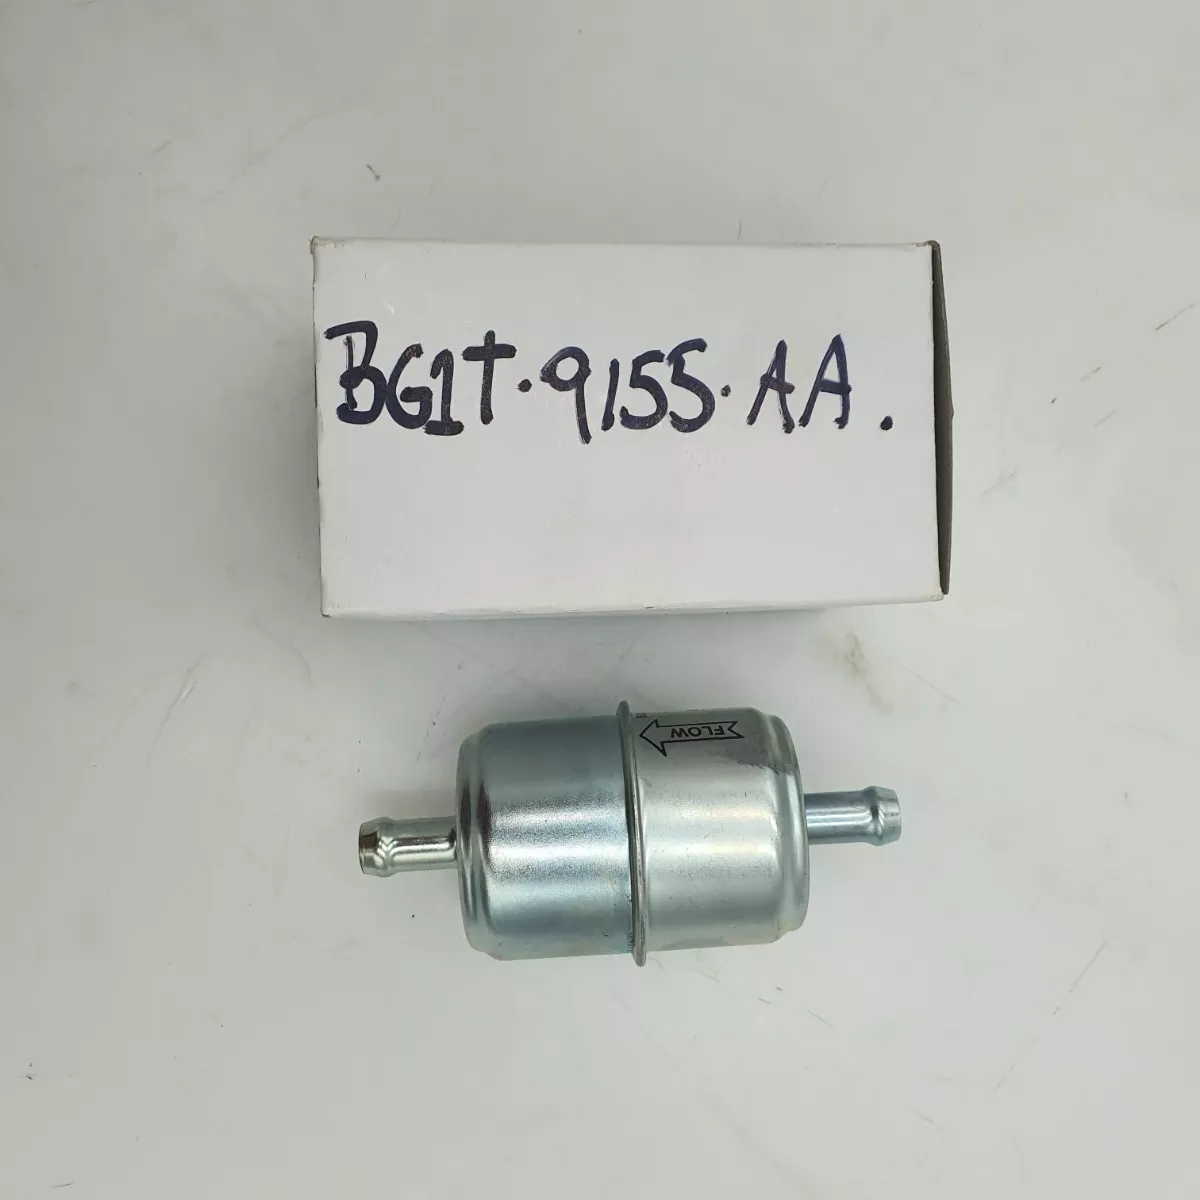 BG1T-9155-AA.
FLOW